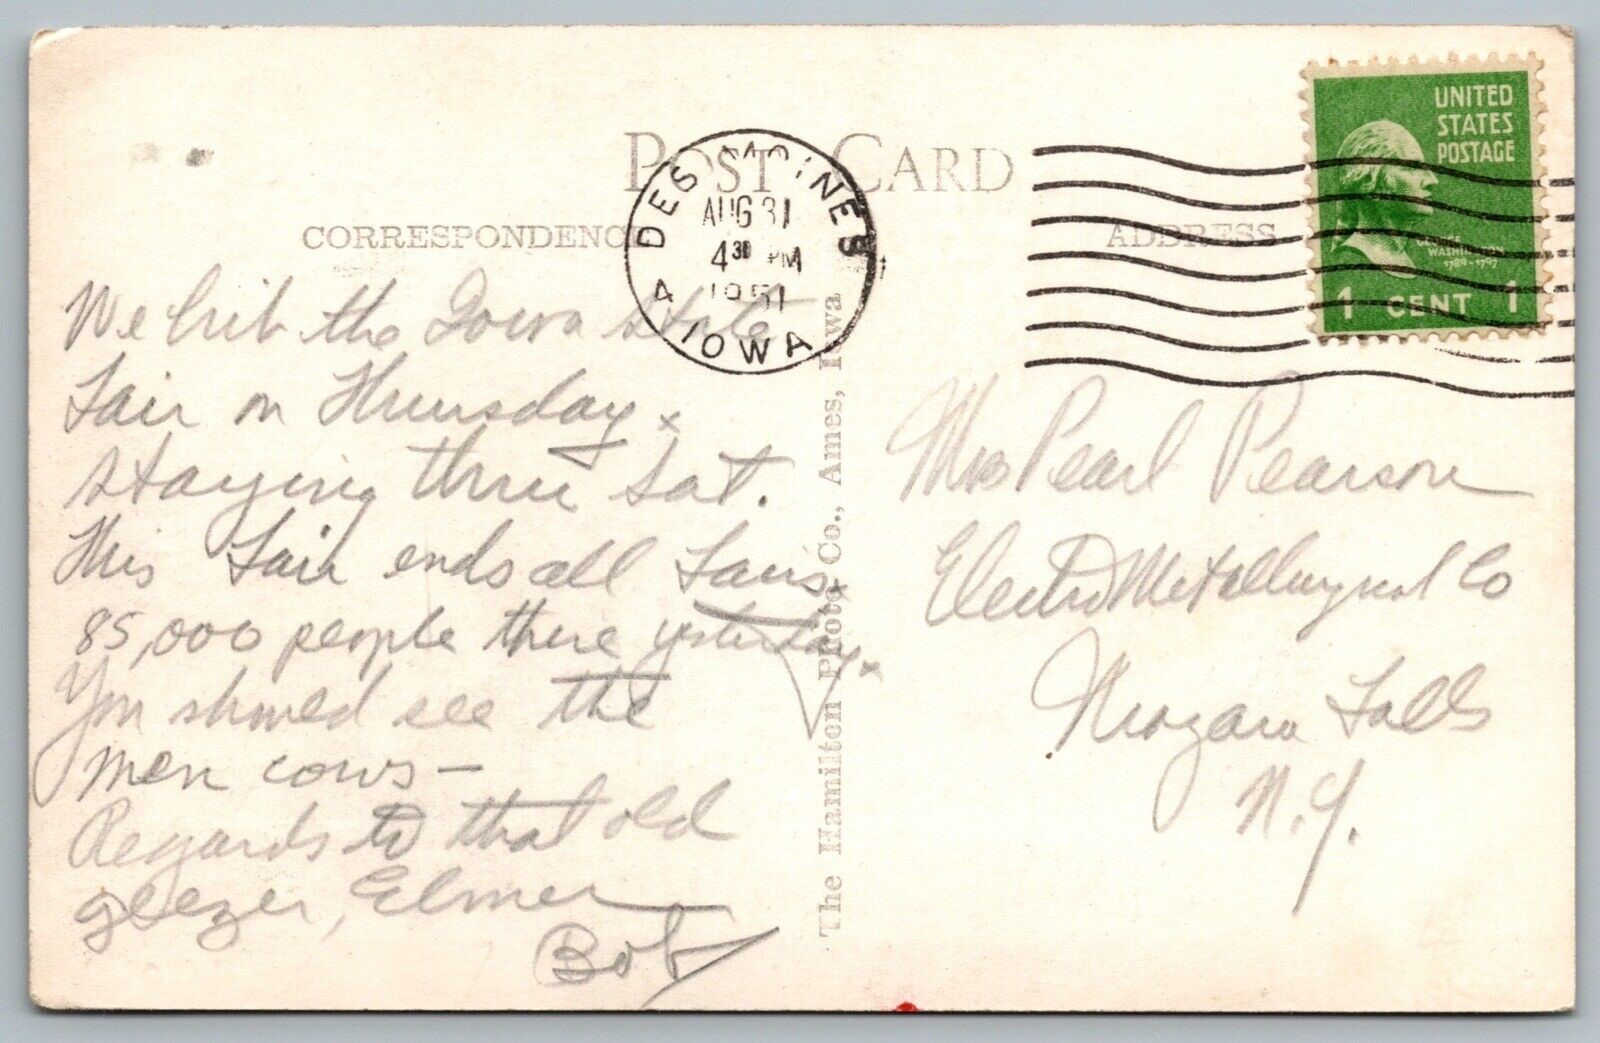 POST CARD
CORRESPONDENCE
ADDRESS
DES MOINES
AUG 31
4 30 PM
1951
4 IOWA
UNITED
STATES
POSTAGE
GEORGE
WASHINGTON
1789-1797
1 CENT 1
We hit the Iowa State
Fair on Thursday.
staying thru Sat.
This Fair ends all Fairs.
85,000 people there yesterday.
You should see the
men cows—
Regards to that old
geezer, Elmer
Bob
The Hamilton Photo Co., Ames, Iowa
Mrs Pearl Pearson
Electro Metallurgical Co
Niagara Falls
N.Y.